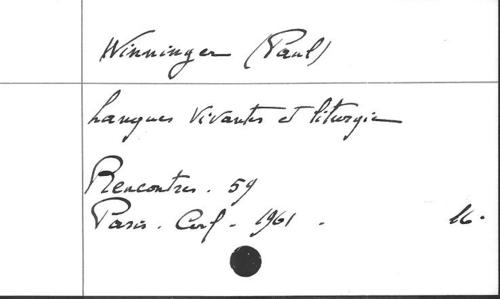 Winninger (Paul)
Langues vivantes et liturgie
Rencontres. 59
Paris. Cerf - 1961 - 16.